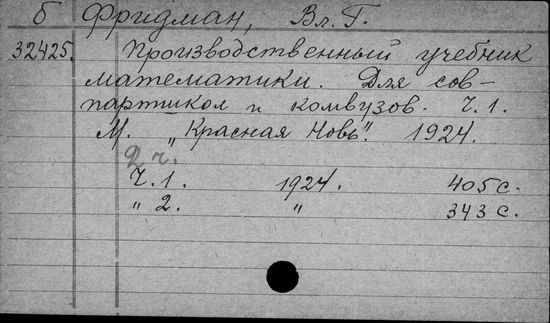 б Фридман, Вл. Г.
32425. Производственный учебник
математики. Для сов-
партшкол и комвузов. Ч. 1.
М. "Красная Новь". 1924.
2 ч.
Ч. 1. 1924. 405 с.
" 2. " 343 с.